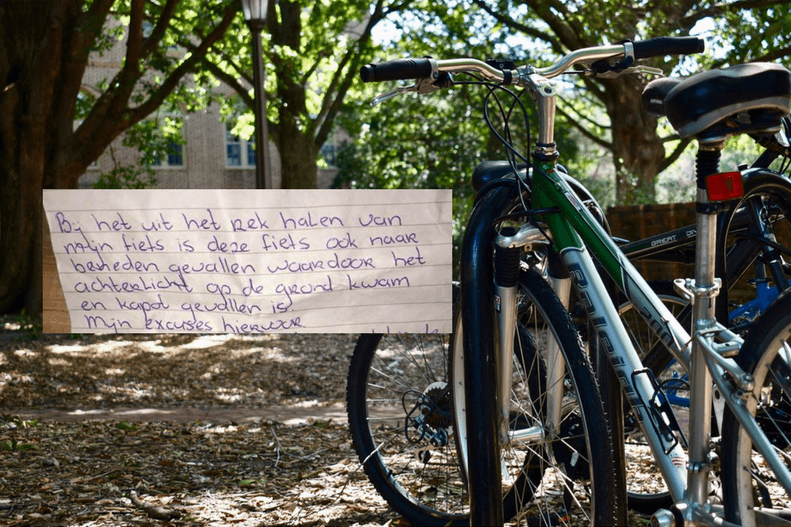 Bij het uit het rek halen van
mijn fiets is deze fiets ook naar
beneden gevallen waardoor het
achterlicht op de grond kwam
en kapot gevallen is.
Mijn excuses hiervoor
RALEIGH
GREAT